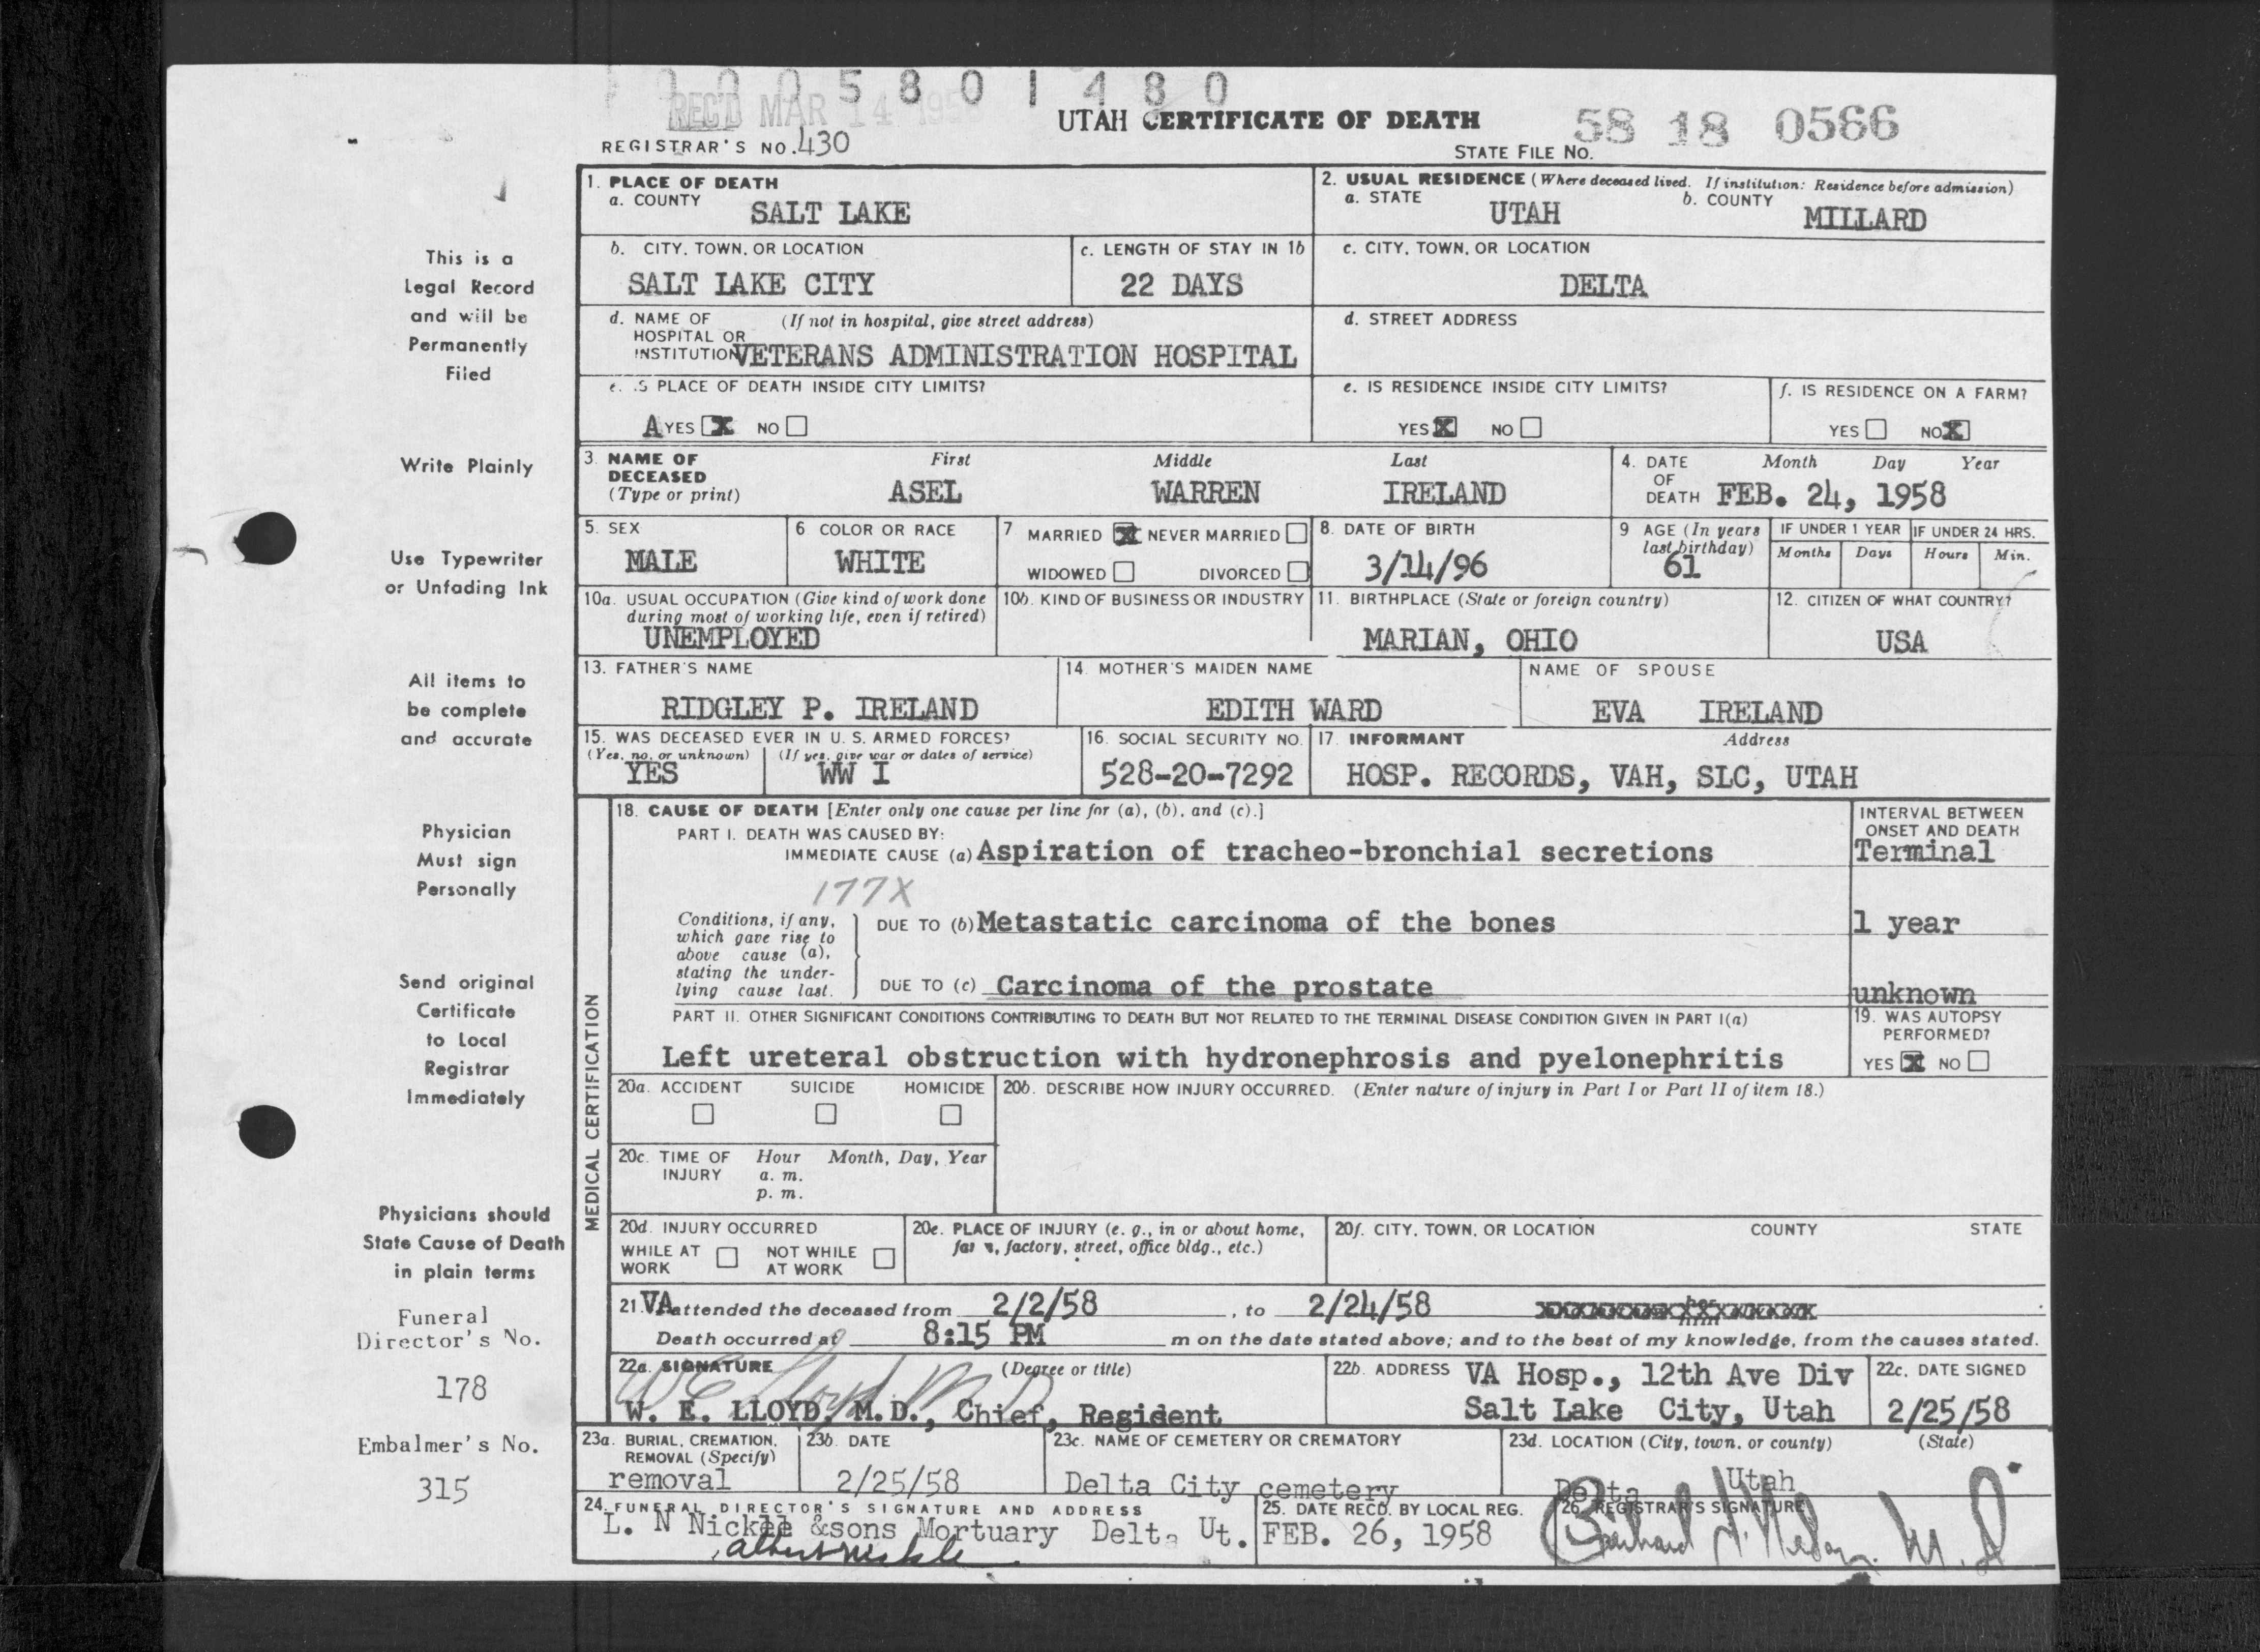 0 0 0 5 8 0 1 4 8 0
REC'D MAR 14 195
UTAH CERTIFICATE OF DEATH
58 18 0566
REGISTRAR'S NO. 430
STATE FILE NO.
This is a
Legal Record
and will be
Permanently
Filed
Write Plainly
Use Typewriter
or Unfading Ink
All items to
be complete
and accurate
Physician
Must sign
Personally
Send original
Certificate
to Local
Registrar
Immediately
Physicians should
State Cause of Death
in plain terms
Funeral
Director's No.
178
Embalmer's No.
315
1. PLACE OF DEATH
a. COUNTY
SALT LAKE
2. USUAL RESIDENCE (Where deceased lived. If institution: Residence before admission)
a. STATE UTAH b. COUNTY MILLARD
b. CITY, TOWN, OR LOCATION
SALT LAKE CITY
c. LENGTH OF STAY IN 1b
22 DAYS
c. CITY, TOWN, OR LOCATION
DELTA
d. NAME OF (If not in hospital, give street address)
HOSPITAL OR
INSTITUTION VETERANS ADMINISTRATION HOSPITAL
d. STREET ADDRESS
e. IS PLACE OF DEATH INSIDE CITY LIMITS?
A YES X NO
e. IS RESIDENCE INSIDE CITY LIMITS?
YES X NO
f. IS RESIDENCE ON A FARM?
YES NO X
3. NAME OF
DECEASED
(Type or print)
First Middle Last
ASEL WARREN IRELAND
4. DATE
OF
DEATH
Month Day Year
FEB. 24, 1958
5. SEX
MALE
6 COLOR OR RACE
WHITE
7 MARRIED X NEVER MARRIED
WIDOWED DIVORCED
8. DATE OF BIRTH
3/14/96
9 AGE (In years
last birthday)
61
IF UNDER 1 YEAR
Months Days
IF UNDER 24 HRS.
Hours Min.
10a. USUAL OCCUPATION (Give kind of work done
during most of working life, even if retired)
UNEMPLOYED
10b. KIND OF BUSINESS OR INDUSTRY
11. BIRTHPLACE (State or foreign country)
MARIAN, OHIO
12. CITIZEN OF WHAT COUNTRY?
USA
13. FATHER'S NAME
RIDGLEY P. IRELAND
14. MOTHER'S MAIDEN NAME
EDITH WARD
NAME OF SPOUSE
EVA IRELAND
15. WAS DECEASED EVER IN U. S. ARMED FORCES?
(Yes, no, or unknown) (If yes, give war or dates of service)
YES WW I
16. SOCIAL SECURITY NO.
528-20-7292
17. INFORMANT Address
HOSP. RECORDS, VAH, SLC, UTAH
MEDICAL CERTIFICATION
18. CAUSE OF DEATH [Enter only one cause per line for (a), (b), and (c).]
PART I. DEATH WAS CAUSED BY:
IMMEDIATE CAUSE (a) Aspiration of tracheo-bronchial secretions
INTERVAL BETWEEN
ONSET AND DEATH
Terminal
177X
Conditions, if any,
which gave rise to
above cause (a),
stating the under-
lying cause last.
DUE TO (b) Metastatic carcinoma of the bones
1 year
DUE TO (c) Carcinoma of the prostate
unknown
PART II. OTHER SIGNIFICANT CONDITIONS CONTRIBUTING TO DEATH BUT NOT RELATED TO THE TERMINAL DISEASE CONDITION GIVEN IN PART I(a)
Left ureteral obstruction with hydronephrosis and pyelonephritis
19. WAS AUTOPSY
PERFORMED?
YES X NO
20a. ACCIDENT SUICIDE HOMICIDE
20b. DESCRIBE HOW INJURY OCCURRED. (Enter nature of injury in Part I or Part II of item 18.)
20c. TIME OF Hour Month, Day, Year
INJURY a. m.
p. m.
20d. INJURY OCCURRED
WHILE AT NOT WHILE
WORK AT WORK
20e. PLACE OF INJURY (e. g., in or about home,
farm, factory, street, office bldg., etc.)
20f. CITY, TOWN, OR LOCATION COUNTY STATE
21. VA attended the deceased from 2/2/58, to 2/24/58
Death occurred at 8:15 PM m on the date stated above; and to the best of my knowledge, from the causes stated.
22a. SIGNATURE (Degree or title)
W E Lloyd M D
W. E. LLOYD, M.D., Chief, Regident
22b. ADDRESS VA Hosp., 12th Ave Div
Salt Lake City, Utah
22c. DATE SIGNED
2/25/58
23a. BURIAL, CREMATION,
REMOVAL (Specify)
removal
23b. DATE
2/25/58
23c. NAME OF CEMETERY OR CREMATORY
Delta City cemetery
23d. LOCATION (City, town, or county) (State)
Delta Utah
24. FUNERAL DIRECTOR'S SIGNATURE AND ADDRESS
L. N Nickle &sons Mortuary Delta Ut.
25. DATE RECD. BY LOCAL REG.
FEB. 26, 1958
26. REGISTRAR'S SIGNATURE
M. D